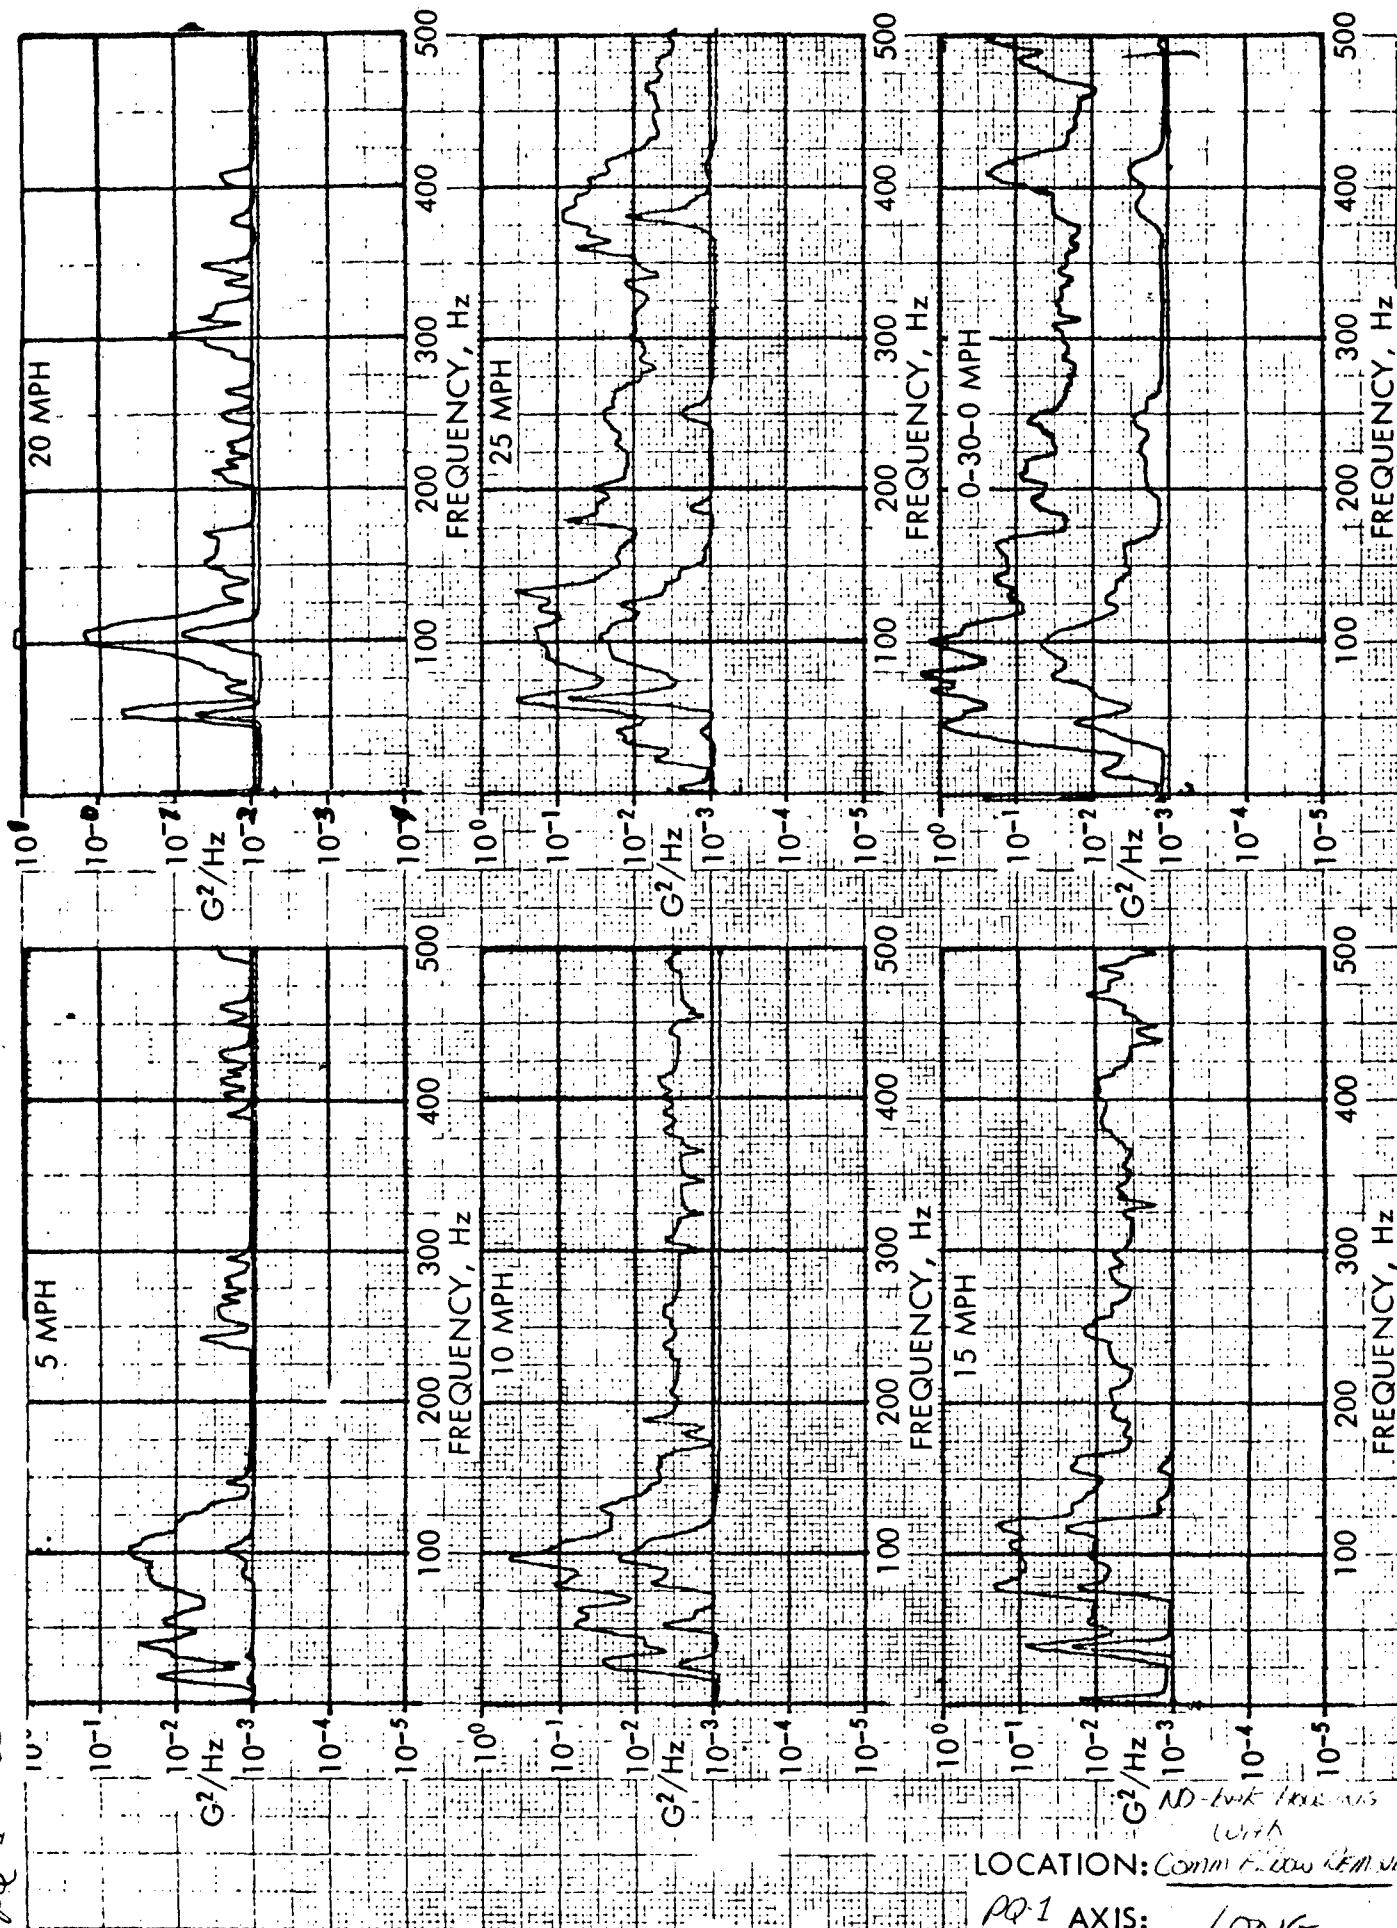 5 MPH
10⁻¹
10⁻²
G²/Hz
10⁻³
10⁻⁴
10⁻⁵
100 200 300 400 500
FREQUENCY, Hz
20 MPH
10¹
10⁻⁰
10⁻¹
G²/Hz
10⁻²
10⁻³
10⁻⁴
100 200 300 400 500
FREQUENCY, Hz
10 MPH
10⁰
10⁻¹
10⁻²
G²/Hz
10⁻³
10⁻⁴
10⁻⁵
100 200 300 400 500
FREQUENCY, Hz
25 MPH
10⁰
10⁻¹
10⁻²
G²/Hz
10⁻³
10⁻⁴
10⁻⁵
100 200 300 400 500
FREQUENCY, Hz
15 MPH
10⁰
10⁻¹
10⁻²
G²/Hz
10⁻³
10⁻⁴
10⁻⁵
100 200 300 400 500
FREQUENCY, Hz
0-30-0 MPH
10⁰
10⁻¹
10⁻²
G²/Hz
10⁻³
10⁻⁴
10⁻⁵
100 200 300 400 500
FREQUENCY, Hz
with
LOCATION: Comm
PQ-1 AXIS: